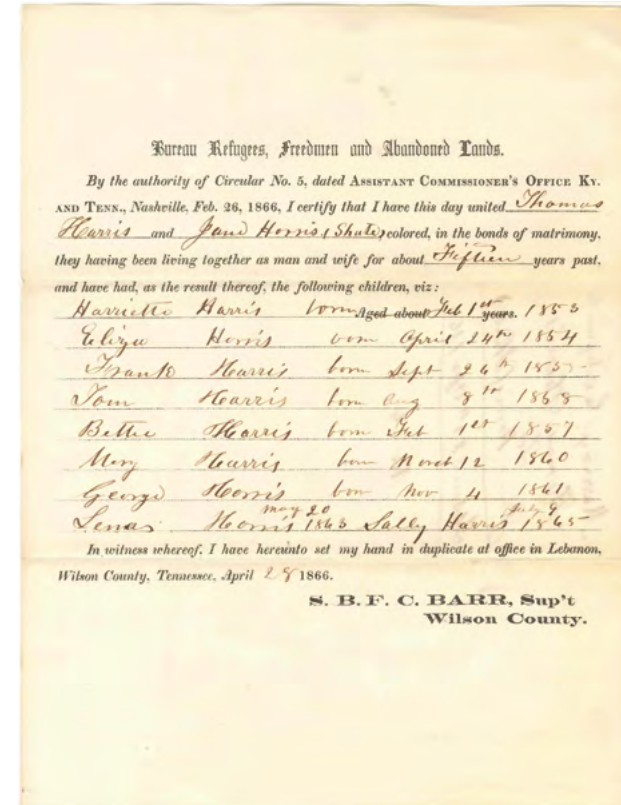 Bureau Refugees, Freedmen and Abandoned Lands.
By the authority of Circular No. 5, dated ASSISTANT COMMISSIONER'S OFFICE KY.
AND TENN., Nashville, Feb. 26, 1866, I certify that I have this day united Thomas
Harris and Jane Harris (Shute) colored, in the bonds of matrimony,
they having been living together as man and wife for about Fifteen years past,
and have had, as the result thereof, the following children, viz:
Harriette Harris born Aged about Feb 1st years. 1853
Eliza Harris born April 24th 1854
Frank Harris born Sept 26th 1855
Tom Harris born Aug 8th 1858
Bettie Harris born Feb 1st 1857
Mary Harris born March 12 1860
George Harris born Nov 4 1861
Lena Harris May 20 1863 Sally Harris July 9 1865
In witness whereof, I have hereunto set my hand in duplicate at office in Lebanon,
Wilson County, Tennessee, April 28 1866.
S. B. F. C. BARR, Sup't
Wilson County.